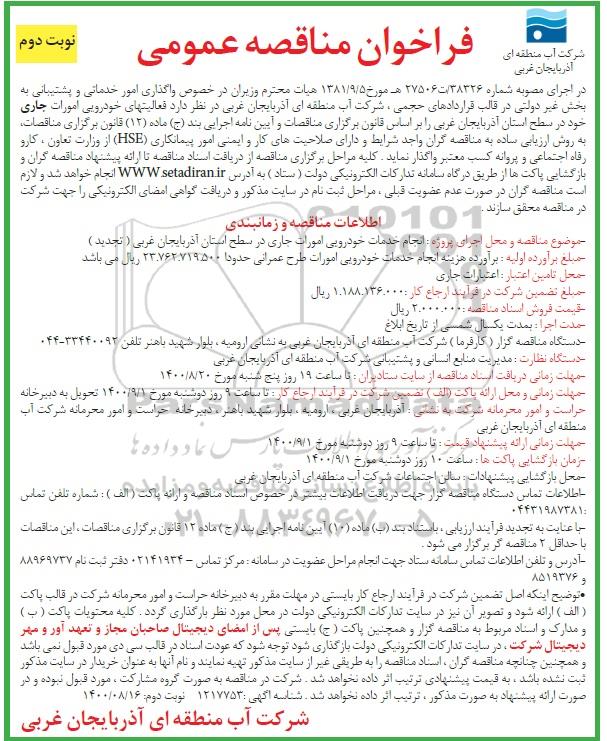 نوبت دوم
فراخوان مناقصه عمومی
شرکت آب منطقه ای
آذربایجان غربی
در اجرای مصوبه شماره ۳۸۳۲۶/ت۲۷۵۰۶ هـ مورخ۱۳۸۱/۹/۵ هیات محترم وزیران در خصوص واگذاری امور خدماتی و پشتیبانی به
بخش غیر دولتی در قالب قراردادهای حجمی ، شرکت آب منطقه ای آذربایجان غربی در نظر دارد فعالیتهای خودرویی امورات جاری
خود در سطح استان آذربایجان غربی را بر اساس قانون برگزاری مناقصات و آیین نامه اجرایی بند (ج) ماده (۱۲)، قانون برگزاری مناقصات،
به روش ارزیابی ساده به مناقصه گران واجد شرایط و دارای صلاحیت های کار و ایمنی امور پیمانکاری (HSE) از وزارت تعاون ، کارو
رفاه اجتماعی و پروانه کسب معتبر واگذار نماید . کلیه مراحل برگزاری مناقصه از دریافت اسناد مناقصه تا ارائه پیشنهاد مناقصه گران و
بازگشایی پاکت ها از طریق درگاه سامانه تدارکات الکترونیکی دولت ( ستاد ) به آدرس WWW.setadiran.ir انجام خواهد شد و لازم
است مناقصه گران در صورت عدم عضویت قبلی ، مراحل ثبت نام در سایت مذکور و دریافت گواهی امضای الکترونیکی را جهت شرکت
در مناقصه محقق سازند .
اطلاعات مناقصه و زمانبندی
-موضوع مناقصه و محل اجرای پروژه : انجام خدمات خودرویی امورات جاری در سطح استان آذربایجان غربی ( تجدید )
-مبلغ برآورده اولیه : برآورده هزینه انجام خدمات خودرویی امورات طرح عمرانی حدودا ۲۳.۷۶۲.۷۱۹.۵۰۰ ریال می باشد
-محل تامین اعتبار : اعتبارات جاری
-مبلغ تضمین شرکت در فرآیند ارجاع کار :۱.۱۸۸.۱۳۶.۰۰۰ ریال
-قیمت فروش اسناد مناقصه :۲.۰۰۰.۰۰۰ ریال
-مدت اجرا : بمدت یکسال شمسی از تاریخ ابلاغ
-دستگاه مناقصه گزار ( کارفرما ) شرکت آب منطقه ای آذربایجان غربی به نشانی ارومیه ، بلوار شهید باهنر تلفن ۳۳۴۴۰۰۹۲-۰۴۴
-دستگاه نظارت : مدیریت منابع انسانی و پشتیبانی شرکت آب منطقه ای آذربایجان غربی
-مهلت زمانی دریافت اسناد مناقصه از سایت ستادایران : تا ساعت ۱۹ روز پنج شنبه مورخ ۱۴۰۰/۸/۲۰
-مهلت زمانی و محل ارائه پاکت (الف ) تضمین شرکت در فرآیند ارجاع کار : تا ساعت ۹ روز دوشنبه مورخ ۱۴۰۰/۹/۱ تحویل به دبیرخانه
حراست و امور محرمانه شرکت به نشانی : آذربایجان غربی ، ارومیه ، بلوار شهید باهنر ، دبیرخانه حراست و امور محرمانه شرکت آب
منطقه ای آذربایجان غربی
-مهلت زمانی ارائه پیشنهاد قیمت : تا ساعت ۹ روز دوشنبه مورخ ۱۴۰۰/۹/۱
-زمان بازگشایی پاکت ها : ساعت ۱۰ روز دوشنبه مورخ ۱۴۰۰/۹/۱
-محل بازگشایی پیشنهادات : سالن اجتماعات شرکت آب منطقه ای آذربایجان غربی
-اطلاعات تماس دستگاه مناقصه گزار جهت دریافت اطلاعات بیشتر در خصوص اسناد مناقصه و ارائه پاکت ( الف ) : شماره تلفن تماس
:۰۴۴۳۱۹۸۷۳۸۱
-با عنایت به تجدید فرآیند ارزیابی ، باستناد بند (ب) ماده (۱۰) آیین نامه اجرایی بند ( ج ) ماده ۱۲ قانون برگزاری مناقصات ، این مناقصات
با حداقل ۲ مناقصه گر برگزار می شود .
-آدرس و تلفن اطلاعات تماس سامانه ستاد جهت انجام مراحل عضویت در سامانه : مرکز تماس – ۰۲۱۴۱۹۳۴ دفتر ثبت نام ۸۸۹۶۹۷۳۷
و ۸۵۱۹۳۷۶
•توضیح اینکه اصل تضمین شرکت در فرآیند ارجاع کار بایستی در مهلت مقرر به دبیرخانه حراست و امور محرمانه شرکت در قالب پاکت
( الف ) ارائه شود و تصویر آن نیز در سایت تدارکات الکترونیکی دولت در محل مورد نظر بارگذاری گردد . کلیه محتویات پاکت ( ب )
و مدارک و اسناد مربوط به مناقصه گزار و همچنین پاکت ( ج) بایستی پس از امضای دیجیتال صاحبان مجاز و تعهد آور و مهر
دیجیتال شرکت ، در سایت تدارکات الکترونیکی دولت بازگذاری شود توجه شود که عودت اسناد در قالب سی دی مورد قبول نمی باشد
و همچنین چنانچه مناقصه گران ، اسناد مناقصه را به طریقی غیر از سایت مذکور تهیه نمایند و نام آنها به عنوان خریدار در سایت مذکور
ثبت نشده باشد ، به قیمت پیشنهادی ترتیب اثر داده نخواهد شد . شرکت در مناقصه به صورت گروه مشارکت ، مورد قبول نبوده و در
صورت ارائه پیشنهاد به صورت مذکور ، ترتیب اثر داده نخواهد شد . شناسه آگهی :۱۲۱۷۷۵۳ نوبت دوم: ۱۴۰۰/۰۸/۱۶
شرکت آب منطقه ای آذربایجان غربی